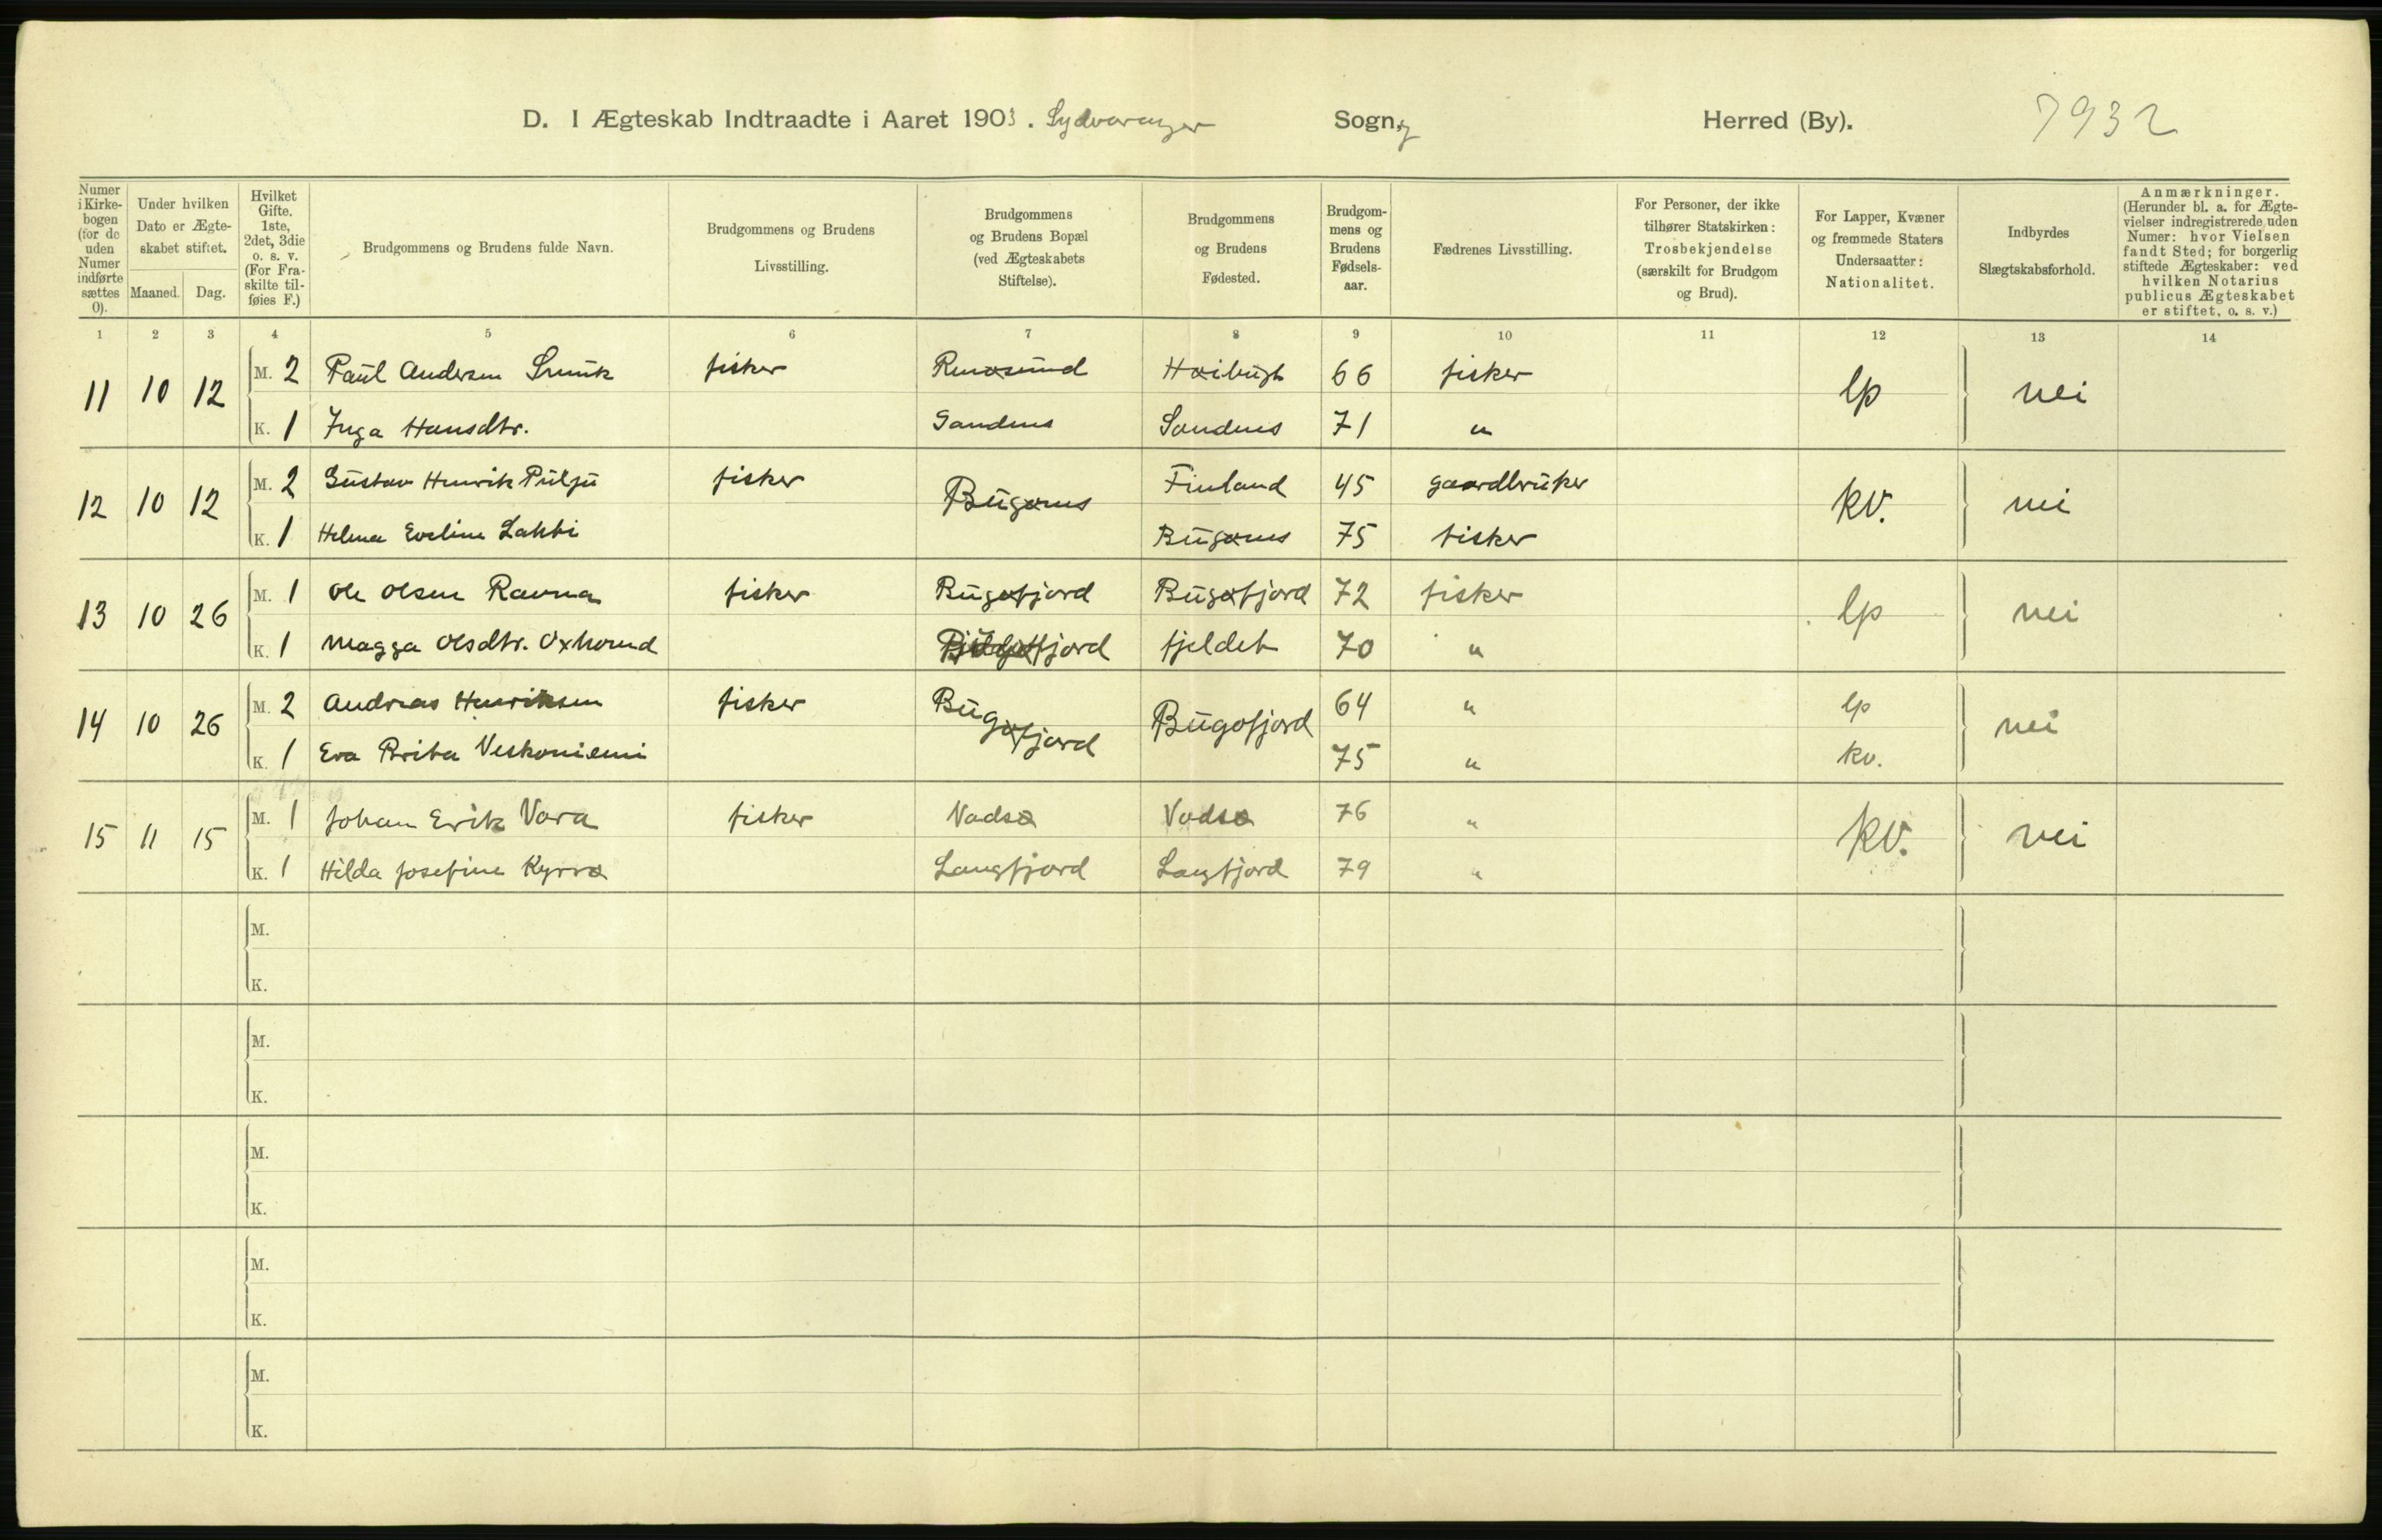 D. I Ægteskab Indtraadte i Aaret 1903. Sydvaranger Sogn Herred (By). 7932
Numer i Kirkebogen (for de uden Numer indførte sættes 0).
Under hvilken Dato er Ægteskabet stiftet.
Maaned. Dag.
Hvilket Gifte. 1ste, 2det, 3die o. s. v. (For Fraskilte tilføies F.)
Brudgommens og Brudens fulde Navn.
Brudgommens og Brudens Livsstilling.
Brudgommens og Brudens Bopæl (ved Ægteskabets Stiftelse).
Brudgommens og Brudens Fødested.
Brudgommens og Brudens Fødselsaar.
Fædrenes Livsstilling.
For Personer, der ikke tilhører Statskirken: Trosbekjendelse (særskilt for Brudgom og Brud).
For Lapper, Kvæner og fremmede Staters Undersaatter: Nationalitet.
Indbyrdes Slægtskabsforhold.
Anmærkninger. (Herunder bl. a. for Ægtevielser indregistrerede uden Numer: hvor Vielsen fandt Sted; for borgerlig stiftede Ægteskaber: ved hvilken Notarius publicus Ægteskabet er stiftet, o. s. v.)
1 2 3 4 5 6 7 8 9 10 11 12 13 14
11 10 12 M. 2 Paul Andersen fisker 66 fisker lp nei
K. 1 Inga Hansdtr. Sandnes Sandnes 71 "
12 10 12 M. 2 Gustav Henrik Pulju fisker Bugønes Finland 45 gaardbruker kv. nei
K. 1 Helma Eveline Lakki Bugønes 75 fisker
13 10 26 M. 1 Ole Olsen Ravna fisker Bugøfjord Bugøfjord 72 fisker lp nei
K. 1 Magga Olsdtr. Oxhorud fjord fjeldet 70 "
14 10 26 M. 2 Andreas Henriksen fisker Bugøfjord Bugøfjord 64 " lp nei
K. 1 Eva Brita Veskoniemi 75 " kv.
15 11 15 M. 1 Johan Erik Vara fisker Vadsø Vadsø 76 " kv. nei
K. 1 Hilda Josefine Kyrrø Langfjord Langfjord 79 "
M.
K.
M.
K.
M.
K.
M.
K.
M.
K.